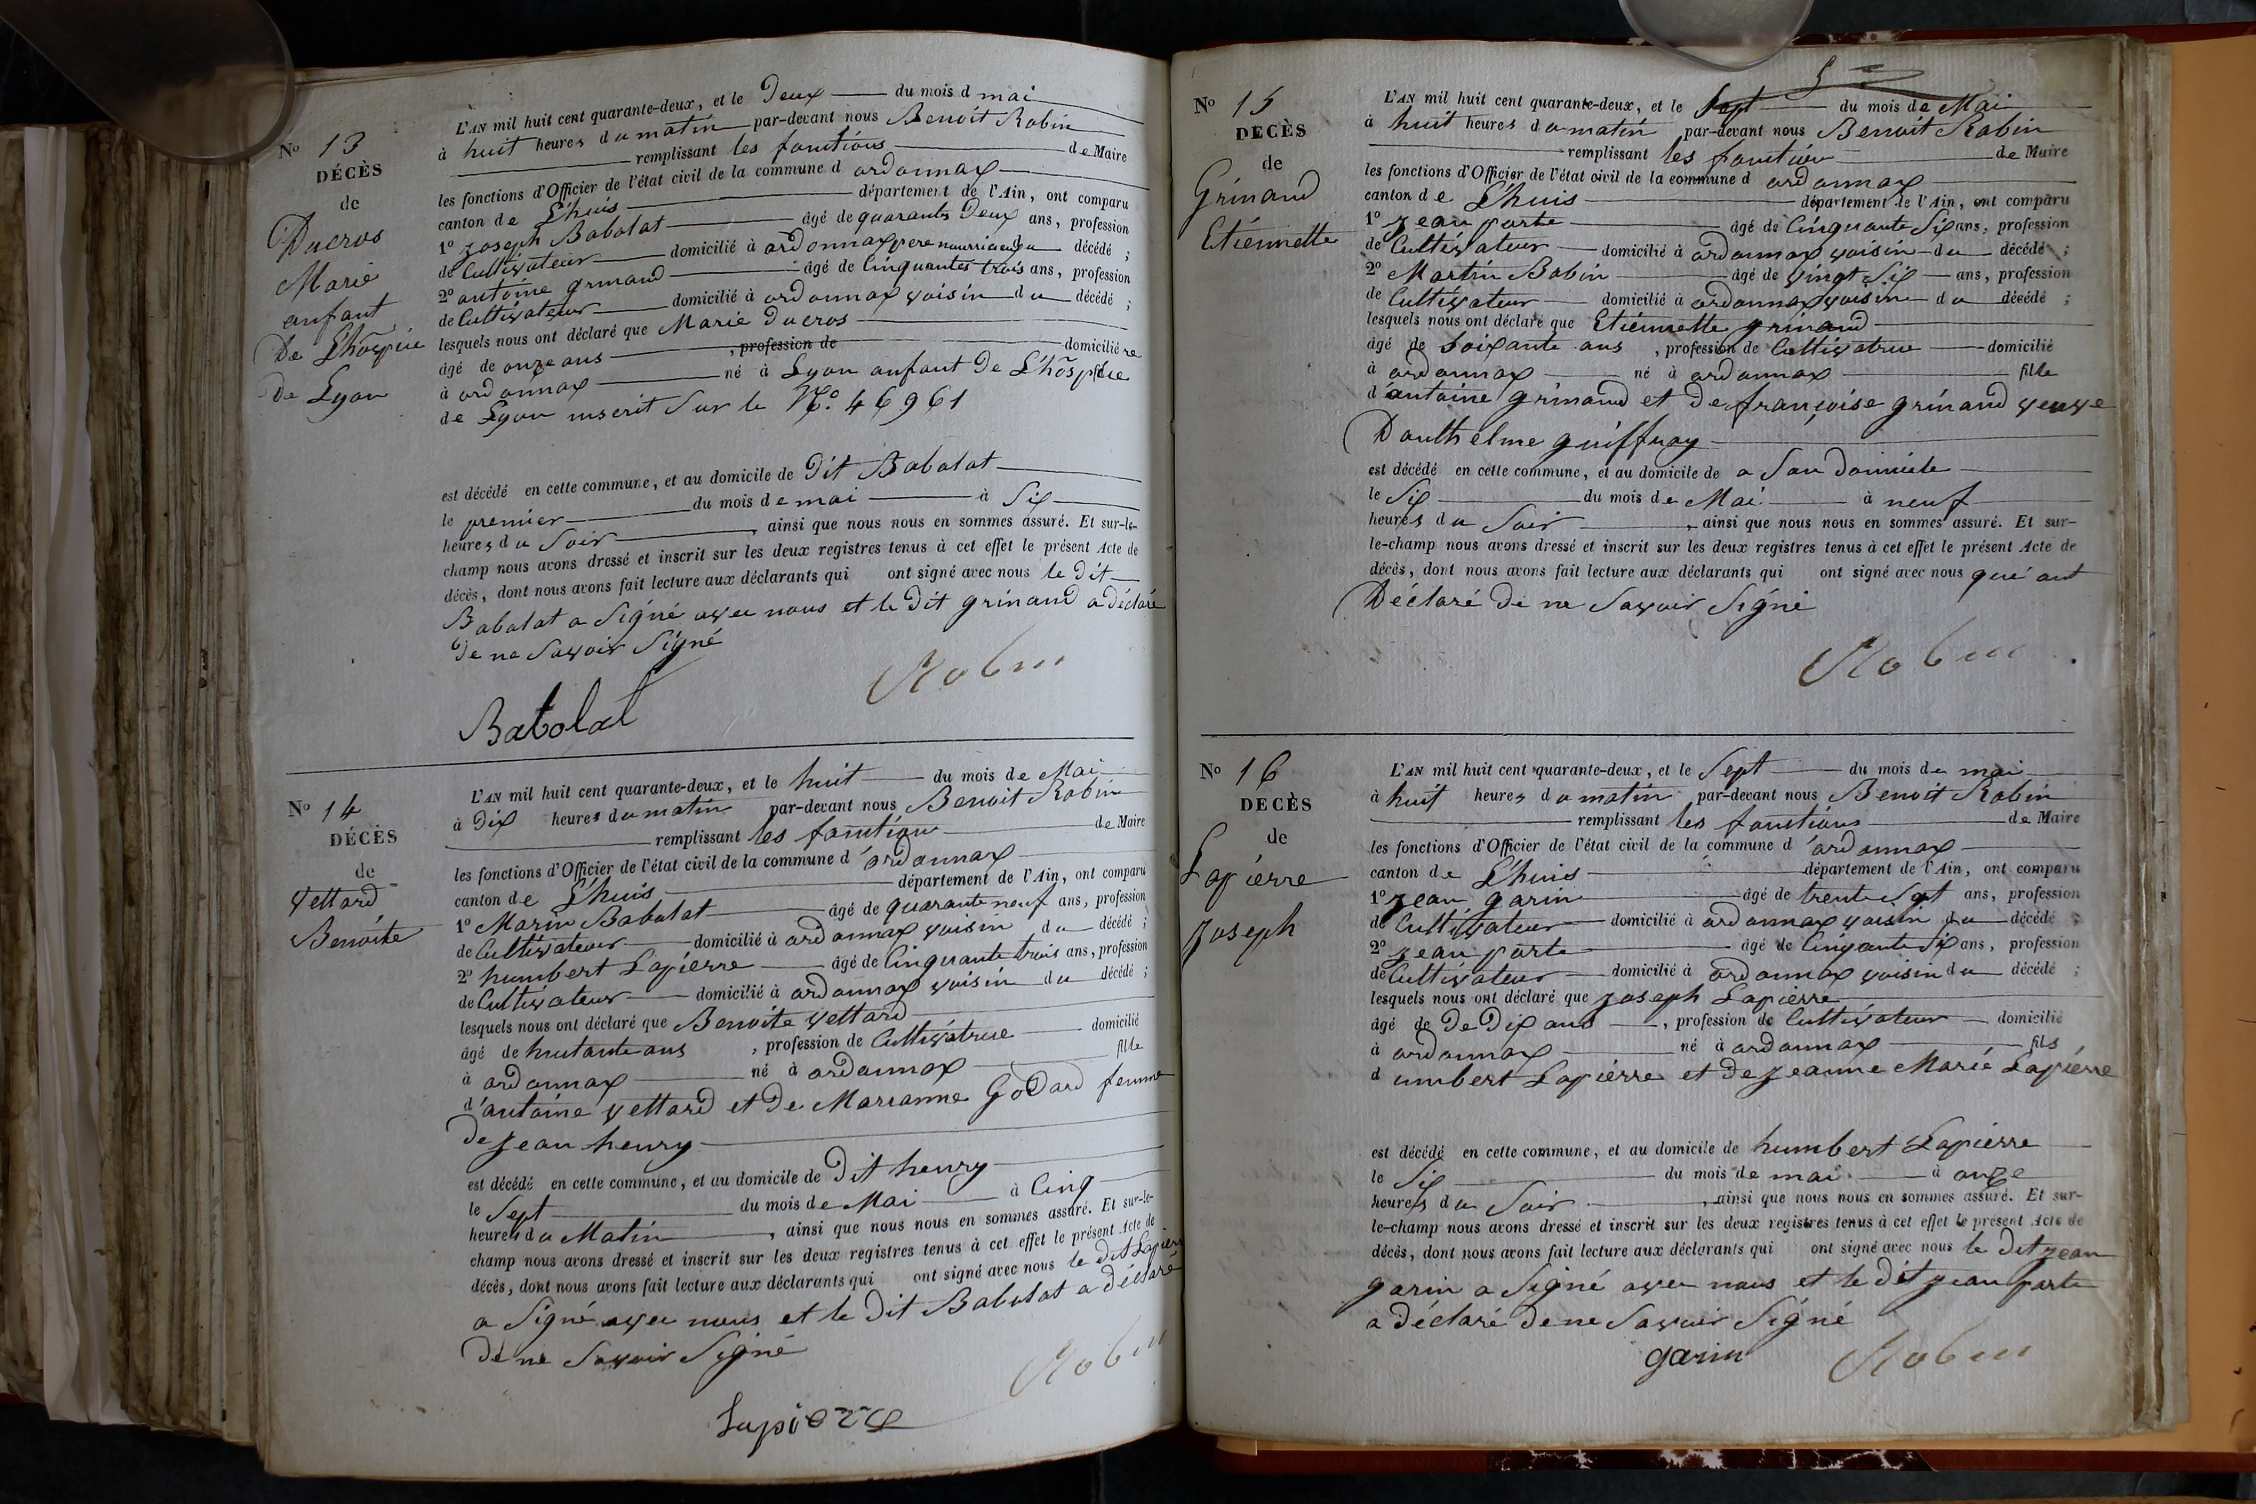 No 13
DÉCÈS
de
Ducros
Marie
enfant
De L'hospice
De Lyon
L'AN mil huit cent quarante-deux, et le Deux du mois d mai
à huit heures du matin par-devant nous Benoit Robin
remplissant les fonctions de Maire
les fonctions d'Officier de l'état civil de la commune d ordonnax
canton de L'huis département de l'Ain, ont comparu
1o joseph Babolat âgé de quarante Deux ans, profession
de Cultivateur domicilié à ordonnax pere nourricier du décédé ;
2o antoine grinand âgé de Cinquantes trois ans, profession
de Cultivateur domicilié à ordonnax voisin du décédé ;
lesquels nous ont déclaré que Marie Ducros
âgé de onze ans , profession de domicilié re
à ordonnax né à Lyon enfant De L'hospice
de Lyon inscrit Sur le No. 46961
est décédé en cette commune, et au domicile de Dit Babolat
le premier du mois de mai à Six
heures du Soir , ainsi que nous nous en sommes assuré. Et sur-le-
champ nous avons dressé et inscrit sur les deux registres tenus à cet effet le présent Acte de
décès, dont nous avons fait lecture aux déclarants qui ont signé avec nous le Dit
Babolat a Signé avec nous et le Dit grinand a déclaré
De ne Savoir Signé
Robin
Babolat
No 14
DÉCÈS
de
Vettard
Benoite
L'AN mil huit cent quarante-deux, et le huit du mois de Mai
à Dix heures du matin par-devant nous Benoit Robin
remplissant les fonction de Maire
les fonctions d'Officier de l'état civil de la commune d'ordonnax
canton de L'huis département de l'Ain, ont comparu
1o Marin Babolat âgé de quarante neuf ans, profession
de Cultivateur domicilié à ordonnax voisin du décédé ;
2o humbert Lapierre âgé de Cinquante trois ans, profession
de Cultivateur domicilié à ordonnax voisin du décédé ;
lesquels nous ont déclaré que Benoite Vettard
âgé de huitante ans , profession de Cultivatrice domicilié
à ordonnax né à ordonnax fille
d'antoine Vettard et De Marianne Godard femme
De jean henry
est décédé en cette commune, et au domicile de Dit henry
le Sept du mois de Mai à Cinq
heures du Matin , ainsi que nous nous en sommes assuré. Et sur-le-
champ nous avons dressé et inscrit sur les deux registres tenus à cet effet le présent Acte de
décès, dont nous avons fait lecture aux déclarants qui ont signé avec nous le dit Lapierre
a Signé avec nous et le Dit Babolat a déclaré
De ne Savoir Signé
Robin
Lapierre
5
No 15
DECÈS
de
Grinand
Etiennette
L'AN mil huit cent quarante-deux, et le Sept du mois de Mai
à huit heures du matin par-devant nous Benoit Robin
remplissant les fonction de Maire
les fonctions d'Officier de l'état civil de la commune d ordonnax
canton de L'huis département de l'Ain, ont comparu
1o jean parte âgé de Cinquante Six ans, profession
de Cultivateur domicilié à ordonnax voisin du décédé ;
2o Martin Babin âgé de Vingt Six ans, profession
de Cultivateur domicilié à ordonnax voisin du décédé ;
lesquels nous ont déclaré que Etiennette grinand
âgé de Soixante ans , profession de Cultivatrice domicilié
à ordonnax né à ordonnax fille
d'antoine grinand et De françoise grinand veuve
Danthelme guiffray
est décédé en cette commune, et au domicile de a Son Domicile
le Six du mois de Mai à neuf
heures du Soir , ainsi que nous nous en sommes assuré. Et sur-
le-champ nous avons dressé et inscrit sur les deux registres tenus à cet effet le présent Acte de
décès, dont nous avons fait lecture aux déclarants qui ont signé avec nous qui ont
Déclaré De ne Savoir Signé
Robin
No 16
DECÈS
de
Lapierre
joseph
L'AN mil huit cent quarante-deux, et le Sept du mois de mai
à huit heures du matin par-devant nous Benoit Robin
remplissant les fonctions de Maire
les fonctions d'Officier de l'état civil de la commune d'ordonnax
canton de L'huis département de l'Ain, ont comparu
1o jean garin âgé de trente Sept ans, profession
de Cultivateur domicilié à ordonnax voisin du décédé ;
2o jean parte âgé de Cinquante Six ans, profession
de Cultivateur domicilié à ordonnax voisin du décédé ;
lesquels nous ont déclaré que joseph Lapierre
âgé de De Dix ans , profession de Cultivateur domicilié
à ordonnax né à ordonnax fils
d umbert Lapierre et De jeanne Marie Lapierre
est décédé en cette commune, et au domicile de humbert Lapierre
le Six du mois de mai à onze
heures du Soir , ainsi que nous nous en sommes assuré. Et sur-
le-champ nous avons dressé et inscrit sur les deux registres tenus à cet effet le présent Acte de
décès, dont nous avons fait lecture aux déclarants qui ont signé avec nous le Dit jean
garin a Signé avec nous et le Dit jean parte
a Déclaré De ne Savoir Signé
garin Robin